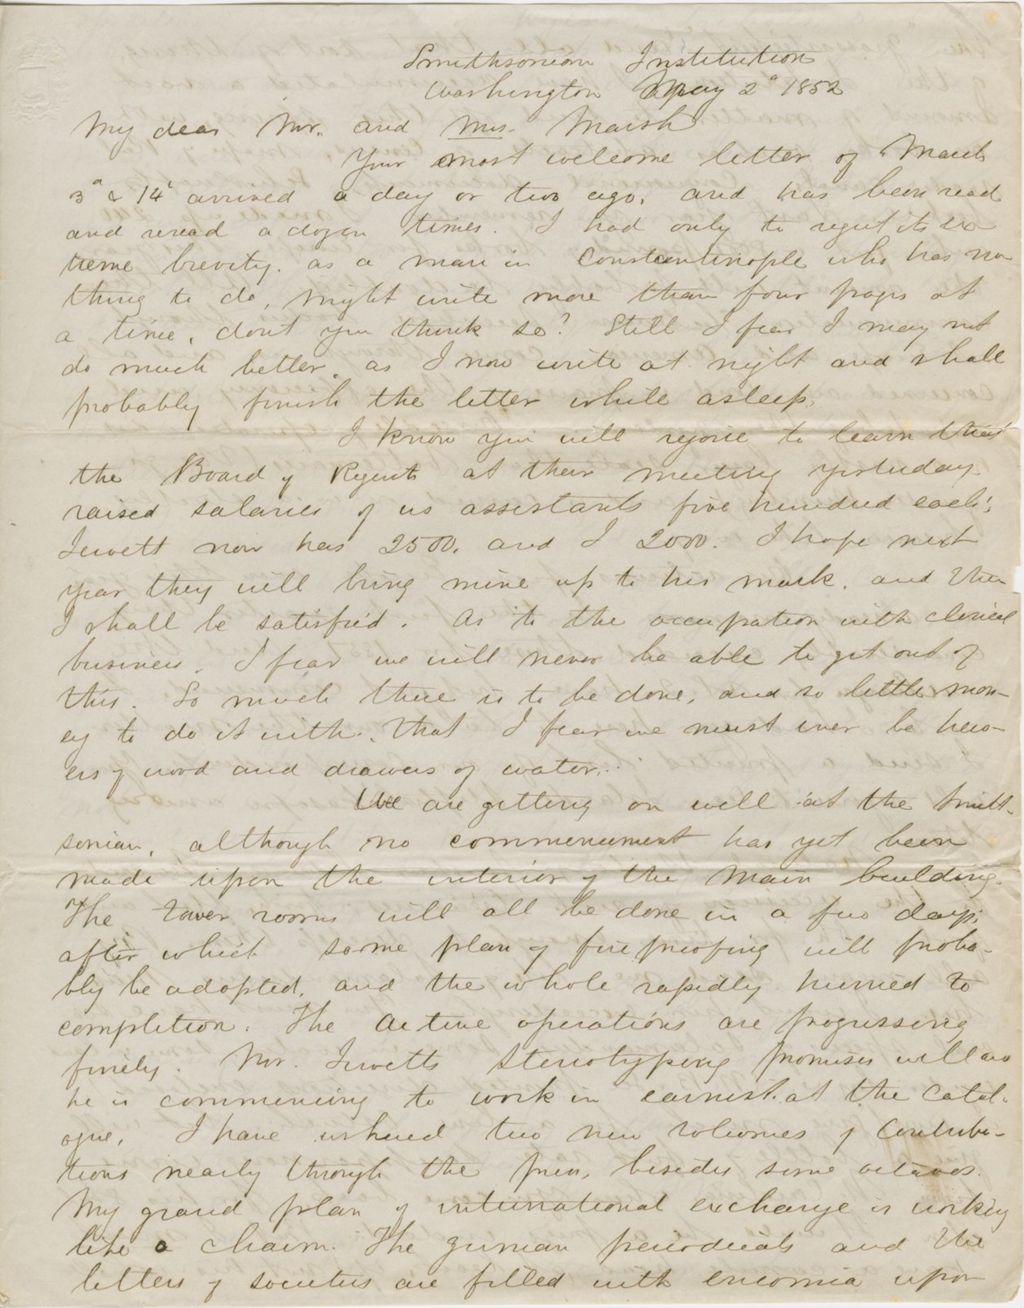 Smithsonian Institution
Washington May 2d 1852
My dear Mr. and Mrs. Marsh
Your most welcome letter of March
3d & 14t arrived a day or two ago, and has been read
and reread a dozen times. I had only to regret its ex-
treme brevity. as a man in Constantinople who has no-
thing to do, might write more than four pages at
a time, dont you think so? Still I fear I may not
do much better, as I now write at night and shall
probably finish the letter while asleep.
I know you will rejoice to learn that
the Board of Regents at their meeting yesterday
raised salaries of us assistants five hundred each;
Jewett now has 2500. and I 2000. I hope next
year they will bring mine up to his mark, and then
I shall be satisfied. As to the occupation with clerical
business, I fear we will never be able to get out of
this. So much there is to be done, and so little mon-
ey to do it with, that I fear we must ever be hew-
ers of wood and drawers of water.
We are getting on well at the Smith-
sonian, although no commencement has yet been
made upon the interior of the main building.
The tower rooms will all be done in a few days,
after which some plan of fireproofing will proba-
bly be adopted, and the whole rapidly hurried to
completion. The active operations are progressing
finely. Mr. Jewetts Stereotyping promises well as
he is commencing to work in earnest at the Catal-
ogue. I have ushered two new volumes of Contribu-
tions nearly through the press, besides some octavos.
My grand plan of international exchange is working
like a charm. The German periodicals and the
letters of societies are filled with encomia upon